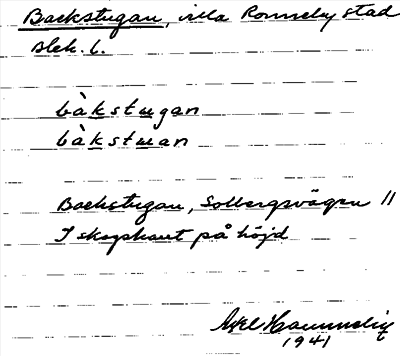 Backstugan, villa Ronneby stad
Blek. l.
bàkstugan
bàkstuan
Backstugan, Solbergsvägen 11
I skogskant på höjd
Axel Hammelin
1941